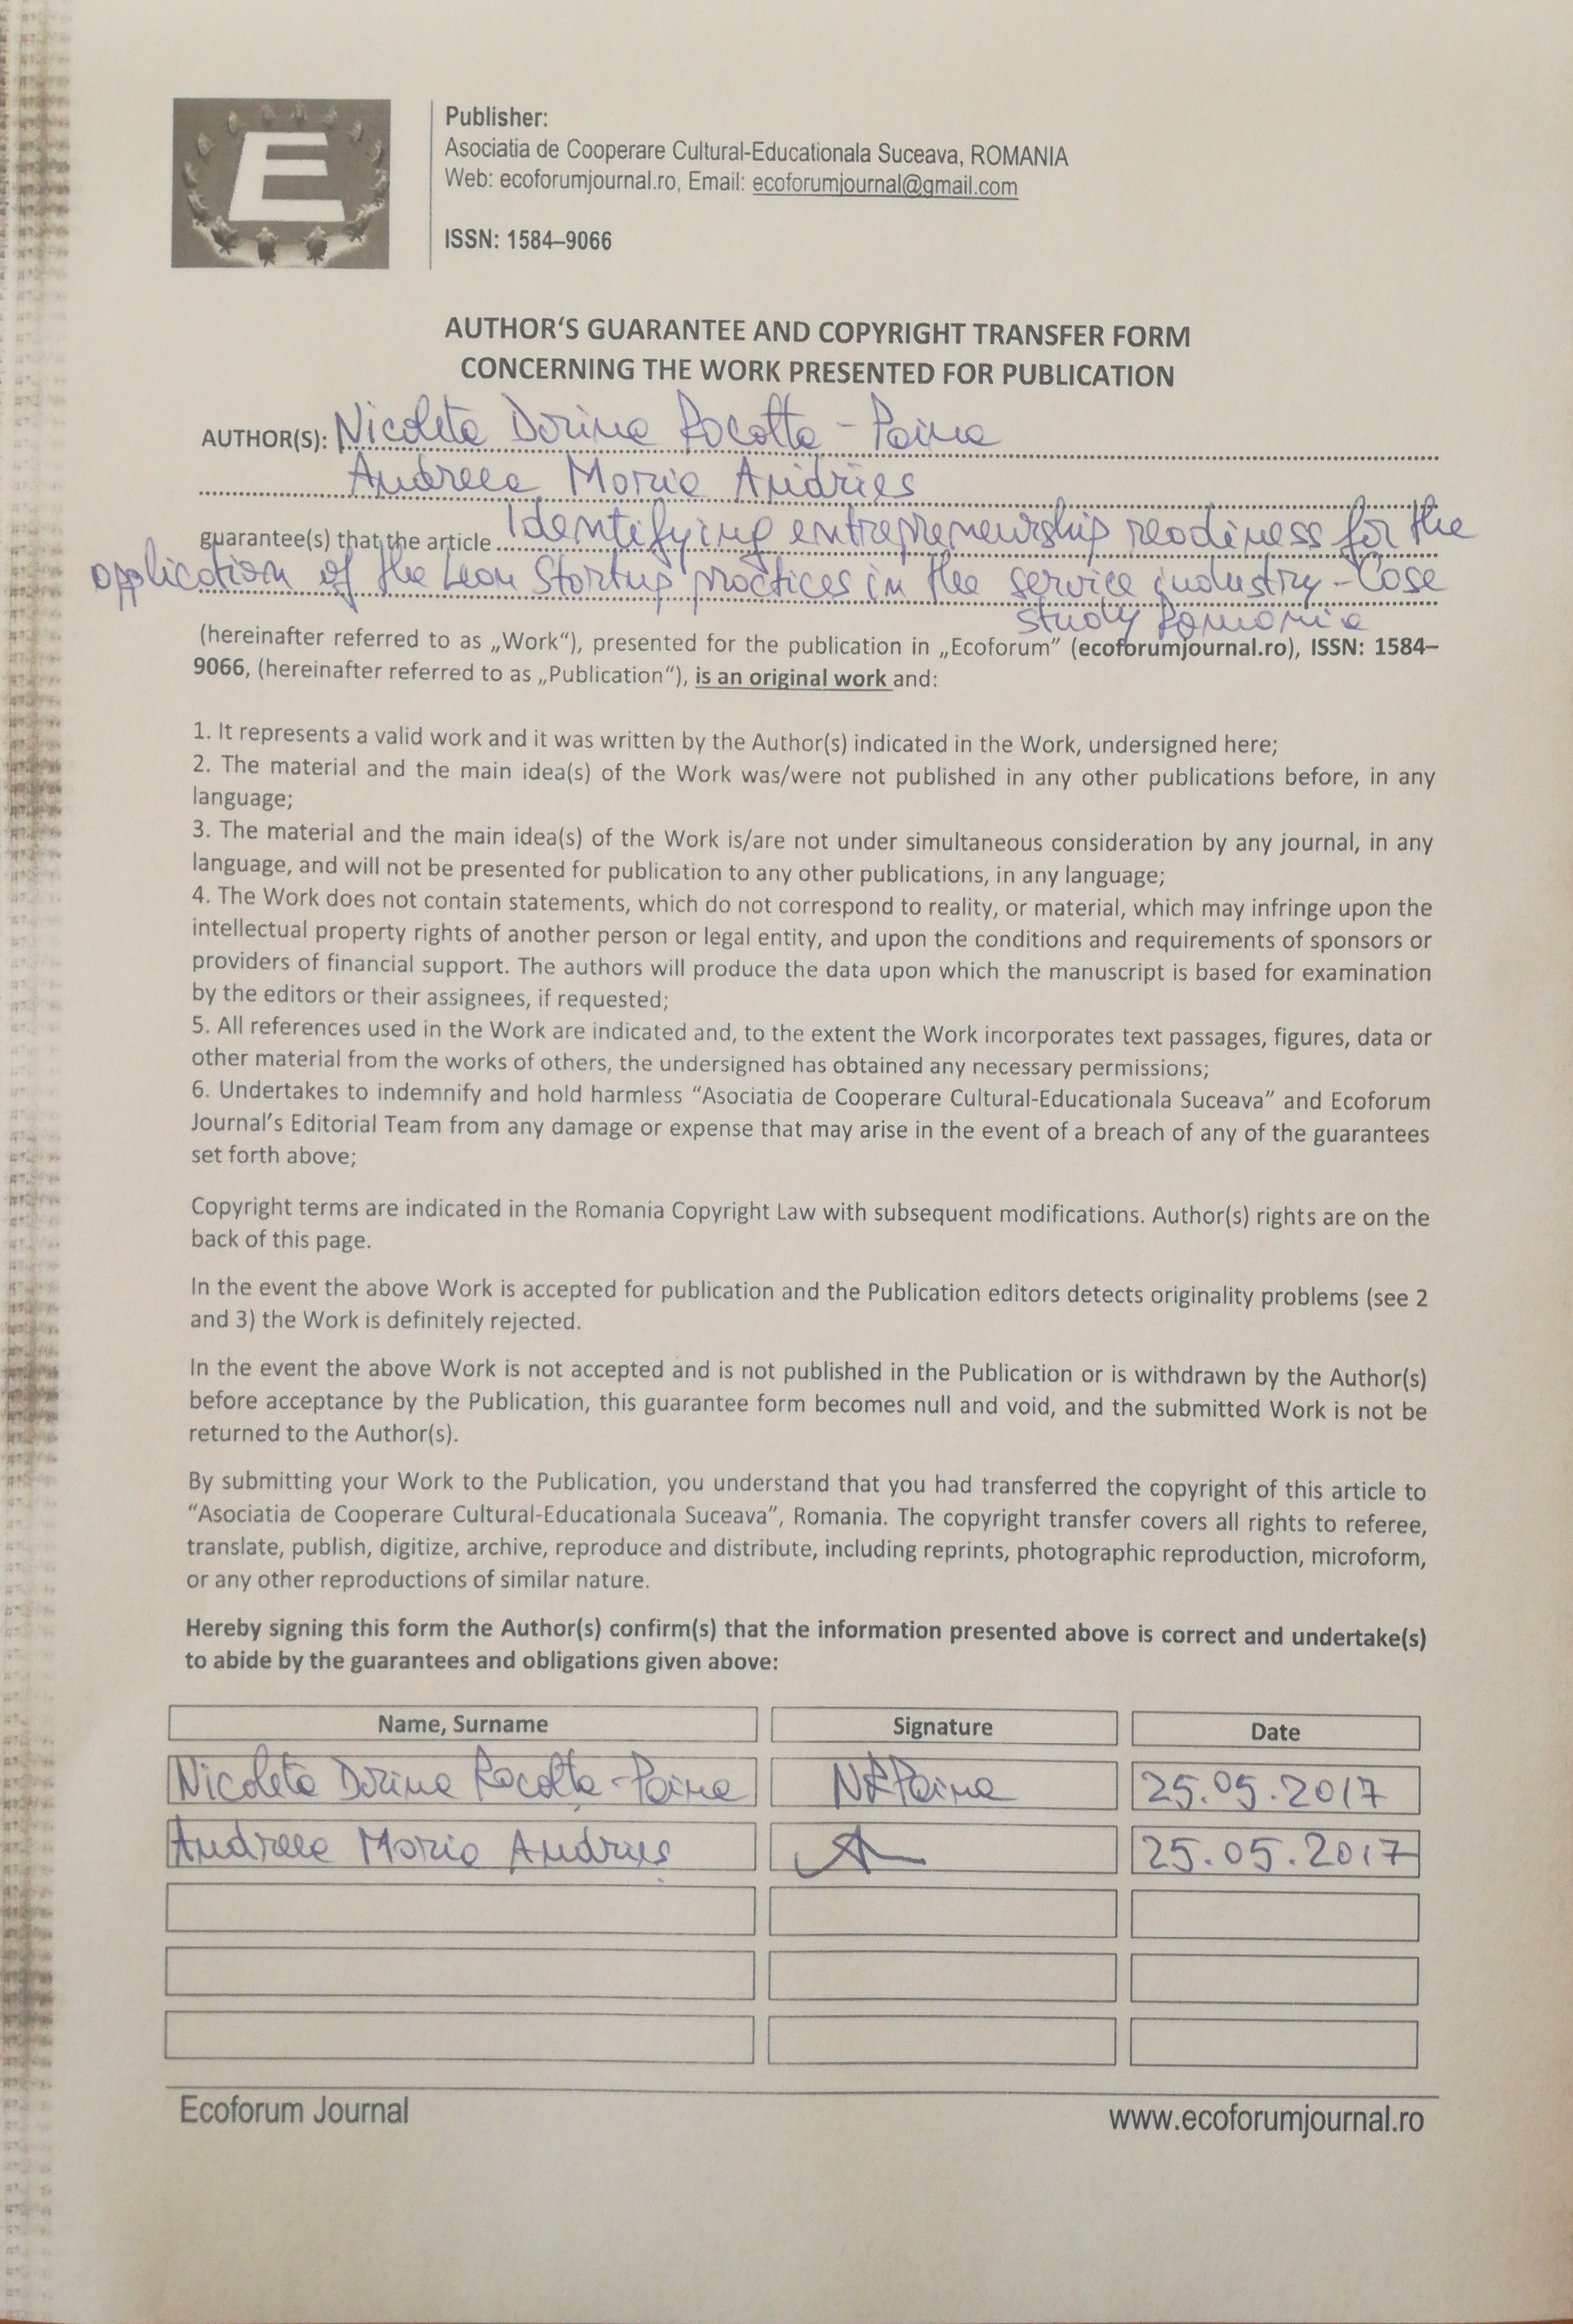 E
Publisher:
Asociatia de Cooperare Cultural-Educationala Suceava, ROMANIA
Web: ecoforumjournal.ro, Email: ecoforumjournal@gmail.com
ISSN: 1584–9066
AUTHOR‘S GUARANTEE AND COPYRIGHT TRANSFER FORM
CONCERNING THE WORK PRESENTED FOR PUBLICATION
AUTHOR(S): Nicoleta Dorina Racolta-Paina
Andreea Maria Andries
guarantee(s) that the article Identifying entrepreneurship readiness for the
application of the Lean Startup practices in the service industry - Case
study Romania
(hereinafter referred to as „Work“), presented for the publication in „Ecoforum” (ecoforumjournal.ro), ISSN: 1584–
9066, (hereinafter referred to as „Publication“), is an original work and:
1. It represents a valid work and it was written by the Author(s) indicated in the Work, undersigned here;
2. The material and the main idea(s) of the Work was/were not published in any other publications before, in any
language;
3. The material and the main idea(s) of the Work is/are not under simultaneous consideration by any journal, in any
language, and will not be presented for publication to any other publications, in any language;
4. The Work does not contain statements, which do not correspond to reality, or material, which may infringe upon the
intellectual property rights of another person or legal entity, and upon the conditions and requirements of sponsors or
providers of financial support. The authors will produce the data upon which the manuscript is based for examination
by the editors or their assignees, if requested;
5. All references used in the Work are indicated and, to the extent the Work incorporates text passages, figures, data or
other material from the works of others, the undersigned has obtained any necessary permissions;
6. Undertakes to indemnify and hold harmless “Asociatia de Cooperare Cultural-Educationala Suceava” and Ecoforum
Journal’s Editorial Team from any damage or expense that may arise in the event of a breach of any of the guarantees
set forth above;
Copyright terms are indicated in the Romania Copyright Law with subsequent modifications. Author(s) rights are on the
back of this page.
In the event the above Work is accepted for publication and the Publication editors detects originality problems (see 2
and 3) the Work is definitely rejected.
In the event the above Work is not accepted and is not published in the Publication or is withdrawn by the Author(s)
before acceptance by the Publication, this guarantee form becomes null and void, and the submitted Work is not be
returned to the Author(s).
By submitting your Work to the Publication, you understand that you had transferred the copyright of this article to
“Asociatia de Cooperare Cultural-Educationala Suceava”, Romania. The copyright transfer covers all rights to referee,
translate, publish, digitize, archive, reproduce and distribute, including reprints, photographic reproduction, microform,
or any other reproductions of similar nature.
Hereby signing this form the Author(s) confirm(s) that the information presented above is correct and undertake(s)
to abide by the guarantees and obligations given above:
Name, Surname Signature Date
Nicoleta Dorina Racolta-Paina NRPaina 25.05.2017
Andreea Maria Andrieș 25.05.2017
Ecoforum Journal www.ecoforumjournal.ro